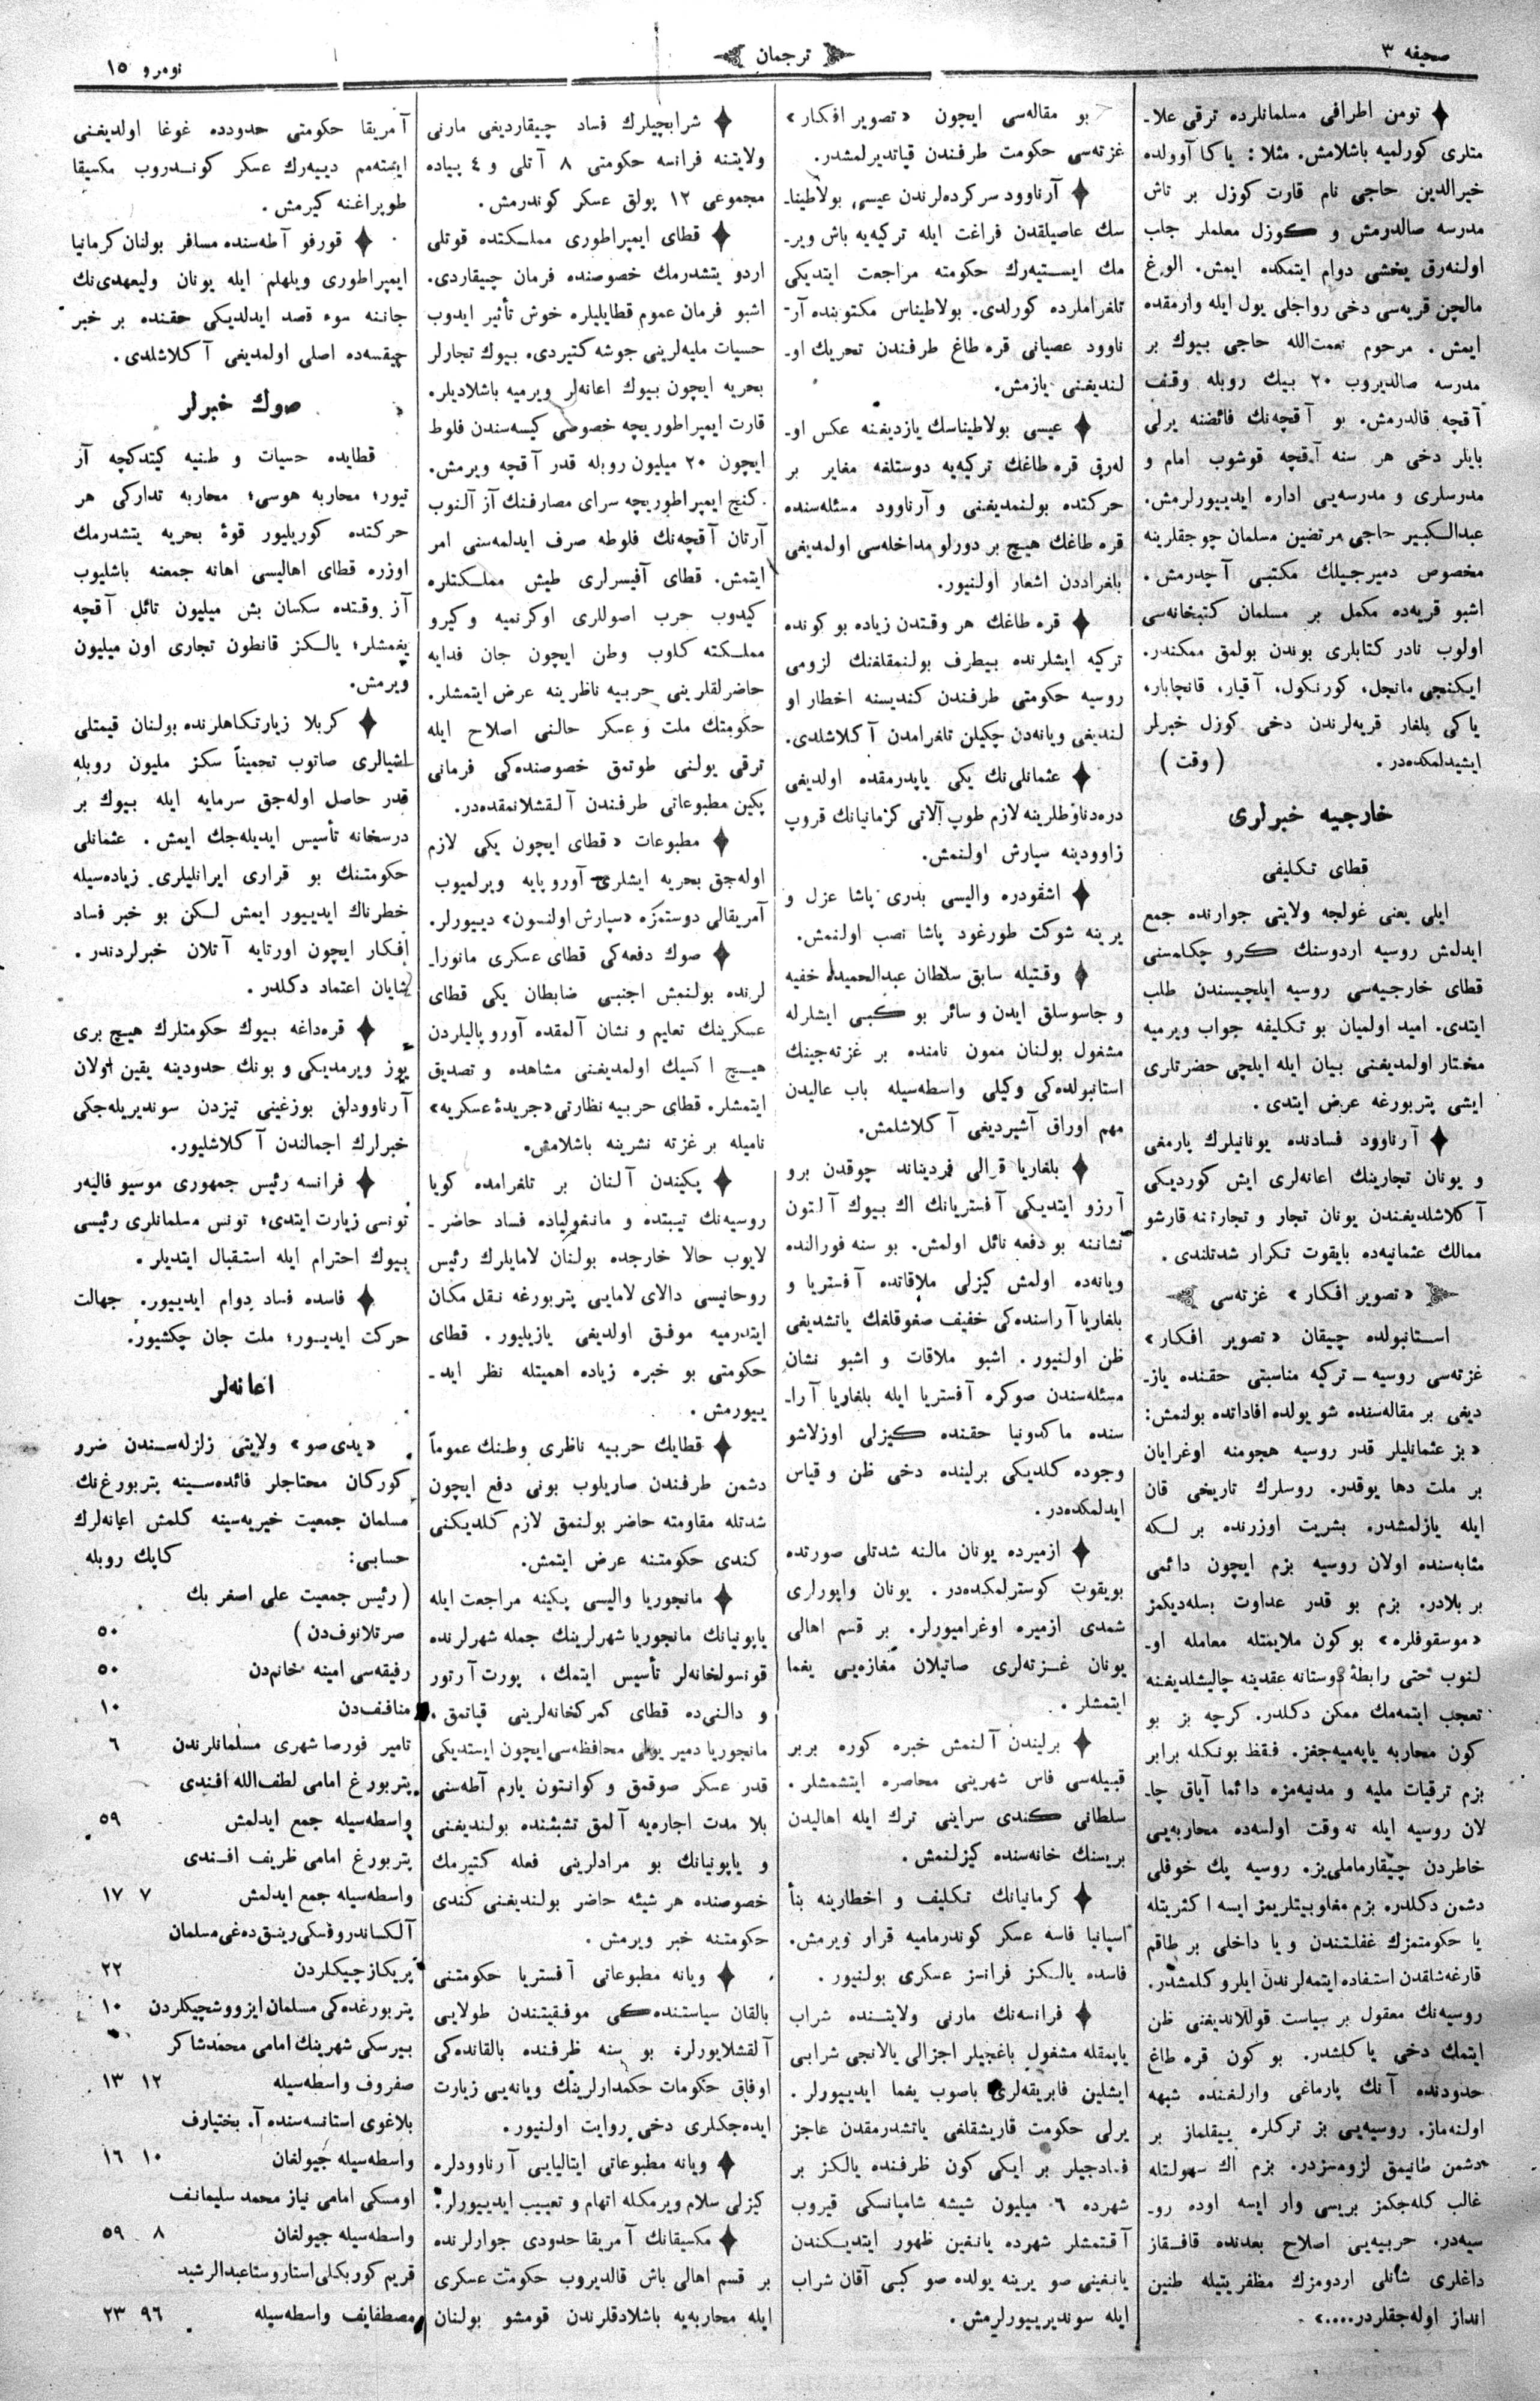 صحيفه ٣
ترجمان
نومرو ١٥
تومن اطرافى مسلمانلرده ترقى علا‍ـ
متلرى كورلميه باشلامش. مثلا: ياكا آوولده
خيرالدين حاجى نام قارت كوزل بر تاش
مدرسه صالدرمش و كوزل معلملر جلب
اولنه‌رق يخشى دوام ايتمكده ايمش. الوغ
مالچن قريه‌سى دخى رواجلى يول ايله وارمقده
ايمش. مرحوم نعمت‌الله حاجى بيوك بر
مدرسه صالديروب ٢٠ بيك روبله وقف
آقچه قالدرمش. بو آقچه‌نك فائضنه يرلى
بايلر دخى هر سنه آقچه قوشوب امام و
مدرسلرى و مدرسه‌يى اداره ايدييورلرمش.
عبدالكبير حاجى مرتضين مسلمان چوجقلرينه
مخصوص دميرجيلك مكتبى آچدرمش.
اشبو قريه‌ده مكمل بر مسلمان كتبخانه‌سى
اولوب نادر كتابلرى بوندن بولمق ممكندر.
ايكنجى مانجل، كورنكول، آقيار، قانچابار،
ياكى بلغار قريه‌لرندن دخى كوزل خبرلر
ايشيدلمكده‌در. (وقت)
خارجيه خبرلرى
قطاى تكليفى
ايلى يعنى غولجه ولايتى جوارنده جمع
ايدلمش روسيه اردوسنك كرو چكلمسنى
قطاى خارجيه‌سى روسيه ايلچيسندن طلب
ايتدى. اميد اولميان بو تكليفه جواب ويرميه
مختار اولمديغنى بيان ايله ايلچى حضرتلرى
ايشى پتربورغه عرض ايتدى.
آرناوود فسادنده يونانيلرك پارمغى
و يونان تجارينك اعانه‌لرى ايش كورديكى
آكلاشلديغندن يونان تجار و تجارتنه قارشو
ممالك عثمانيه‌ده بايقوت تكرار شدتلندى.
«تصوير افكار» غزته‌سى
استانبولده چيقان «تصوير افكار»
غزته‌سى روسيه ـ تركيه مناسبتى حقنده ياز‍ـ
ديغى بر مقاله‌سنده شو يولده افاداتده بولنمش:
«بز عثمانليلر قدر روسيه هجومنه اوغرايان
بر ملت دها يوقدر. روسلرك تاريخى قان
ايله يازلمشدر. بشريت اوزرنده بر لكه
مثابه‌سنده اولان روسيه بزم ايچون دائمى
بر بلادر. بزم بو قدر عداوت بسله‌ديكمز
«موسقوفلره» بوكون ملايمتله معامله او‍ـ
لنوب حتى رابطۀ دوستانه عقدينه چاليشلديغنه
تعجب ايتمه‌مك ممكن دكلدر. كرچه بز بو
كون محاربه ياپه‌ميه‌جغز. فقط بونكله برابر
بزم ترقيات مليه و مدنيه‌مزه دائما آياق چا‍ـ
لان روسيه ايله نه وقت اولسه‌ده محاربه‌يى
خاطردن چيقارماملى‌يز. روسيه پك خوفلى
دشمن دكلدر. بزم مغلوبيتلريمز ايسه اكثريتله
يا حكومتمزك غفلتندن و يا داخلى بر طاقم
قارغه‌شلقدن استفاده ايتمه‌لرندن ايلرو كلمشدر.
روسيه‌نك معقول بر سياست قوللانديغنى ظن
ايتمك دخى ياكلشدر. بو كون قره طاغ
حدودنده آنك پارماغى وارلغنده شبهه
اولنه‌ماز. روسيه‌يى بز تركلره ييقلماز بر
دشمن طانيمق لزومسزدر. بزم اك سهولتله
غالب كله‌جكمز بريسى وار ايسه اوده رو‍ـ
سيه‌در. حربيه‌يى اصلاح بعدنده قافقاز
داغلرى شانلى اردومزك مظفريتيله طنين
انداز اوله‌جقلردر....».
بو مقاله‌سى ايچون «تصوير افكار»
غزته‌سى حكومت طرفندن قپاتديرلمشدر.
آرناوود سركرده‌لرندن عيسى بولاطينا‍ـ
سك عاصيلقدن فراغت ايله تركيه‌يه باش وير‍ـ
مك ايستيه‌رك حكومته مراجعت ايتديكى
تلغراملرده كورلدى. بولاطيناس مكتوبنده آر‍ـ
ناوود عصيانى قره طاغ طرفندن تحريك او‍ـ
لنديغنى يازمش.
عيسى بولاطيناسك يازديغنه عكس او‍ـ
له‌رق قره طاغك تركيه‌يه دوستلغه مغاير بر
حركتده بولنمديغنى و آرناوود مسئله‌سنده
قره طاغك هيچ بر دورلو مداخله‌سى اولمديغى
بلغراددن اشعار اولنيور.
قره طاغك هر وقتدن زياده بو كونده
تركيه ايشلرنده بيطرف بولنمقلغنك لزومى
روسيه حكومتى طرفندن كنديسنه اخطار او
لنديغى ويانه‌دن چكيلن تلغرامدن آكلاشلدى.
عثمانلى‌نك يكى ياپدرمقده اولديغى
دره‌دناوطلرينه لازم طوپ آلاتى كرمانيانك قروپ
زاوودينه سپارش اولنمش.
اشقودره واليسى بدرى پاشا عزل و
يرينه شوكت طورغود پاشا نصب اولنمش.
وقتيله سابق سلطان عبدالحميده خفيه
و جاسوسلق ايدن و سائر بو كبى ايشلرله
مشغول بولنان ممون نامنده بر غزته‌جينك
استانبولده‌كى وكيلى واسطه‌سيله باب عاليدن
مهم اوراق آشيرديغى آكلاشلمش.
بلغاريا قرالى فرديناند چوقدن برو
آرزو ايتديكى آفستريانك اك بيوك آلتون
نشاننه بو دفعه نائل اولمش. بو سنه فورالنده
ويانه‌ده اولمش كيزلى ملاقاتده آفستريا و
بلغاريا آراسنده‌كى خفيف صغوقلغك ياتشديغى
ظن اولنيور. اشبو ملاقات و اشبو نشان
مسئله‌سندن صوكره آفستريا ايله بلغاريا آرا‍ـ
سنده ماكدونيا حقنده كيزلى اوزلاشو
وجوده كلديكى برلينده دخى ظن و قياس
ايدلمكده‌در.
ازميرده يونان مالنه شدتلى صورتده
بويقوت كوسترلمكده‌در. يونان واپورلرى
شمدى ازميره اوغراميورلر. بر قسم اهالى
يونان غزته‌لرى صاتيلان مغازه‌يى يغما
ايتمشلر.
برليندن آلنمش خبره كوره بربر
قبيله‌سى فاس شهرينى محاصره ايتشمشلر.
سلطانى كندى سراينى ترك ايله اهاليدن
بريسنك خانه‌سنده كيزلنمش.
كرمانيانك تكليف و اخطارينه بنأ
اسپانيا فاسه عسكر كوندرماميه قرار ويرمش.
فاسده يالكز فرانسز عسكرى بولنيور.
فرانسه‌نك مارنى ولايتنده شراب
ياپمقله مشغول باغچيلر اجزالى يالانجى شرابى
ايشلين فابريقه‌لرى باصوب يغما ايدييورلر.
يرلى حكومت قاريشقلغى ياتشدرمقدن عاجز
فسادجيلر بر ايكى كون ظرفنده يالكز بر
شهرده ٦ ميليون شيشه شامپانسكى قيروب
آقتمشلر شهرده يانغين ظهور ايتديكندن
يانغينى صو يرينه يولده صو كبى آقان شراب
ايله سوندرييورلرمش.
شرابچيلرك فساد چيقارديغى مارنى
ولايتنه فرانسه حكومتى ٨ آتلى و ٤ پياده
مجموعى ١٢ پولق عسكر كوندرمش.
قطاى ايمپراطورى مملكتده قوتلى
اردو يتشدرمك خصوصنده فرمان چيقاردى.
اشبو فرمان عموم قطايليلره خوش تأثير ايدوب
حسيات مليه‌لرينى جوشه كتيردى. بيوك تجارلر
بحريه ايچون بيوك اعانه‌لر ويرميه باشلاديلر.
قارت ايمپراطوريچه خصوصى كيسه‌سندن فلوط
ايچون ٢٠ ميليون روبله قدر آقچه ويرمش.
كنج ايمپراطوريچه سراى مصارفنك آز آلنوب
آرتان آقچه‌نك فلوطه صرف ايدلمه‌سنى امر
ايتمش. قطاى آفيسرلرى طيش مملكتلره
كيدوب حرب اصوللارى اوكرنميه و كيرو
مملكته كلوب وطن ايچون جان فدايه
حاضرلقلرينى حربيه ناظرينه عرض ايتمشلر.
حكومتك ملت و عسكر حالنى اصلاح ايله
ترقى يولنى طوتمق خصوصنده‌كى فرمانى
پكين مطبوعاتى طرفندن آلقشلانمقده‌در.
مطبوعات «قطاى ايچون يكى لازم
اوله‌جق بحريه ايشلرى آوروپايه ويرلميوب
آمريقالى دوستمزه «سپارش اولنسون» دييورلر.
صوك دفعه‌كى قطاى عسكرى مانورا‍ـ
لرنده بولنمش اجنبى ضابطان يكى قطاى
عسكرينك تعليم و نشان آلمقده آوروپاليلردن
هيچ اكسيك اولمديغنى مشاهده و تصديق
ايتمشلر. قطاى حربيه نظارتى «جريدۀ عسكريه»
ناميله بر غزته نشرينه باشلامش.
پكيندن آلنان بر تلغرامده كويا
روسيه‌نك تيبتده و مانغولياده فساد حاضر‍ـ
لايوب حالا خارجده بولنان لامايلرك رئيس
روحانيسى دالاى لامايى پتربورغه نقل مكان
ايتدرميه موفق اولديغى يازيليور. قطاى
حكومتى بو خبره زياده اهميتله نظر ايد‍ـ
ييورمش.
قطايك حربيه ناظرى وطنك عموماً
دشمن طرفندن صاريلوب بونى دفع ايچون
شدتله مقاومته حاضر بولنمق لازم كلديكنى
كندى حكومتنه عرض ايتمش.
مانجوريا واليسى پكينه مراجعت ايله
ياپونيانك مانجوريا شهرلرينك جمله شهرلرنده
قونسولخانه‌لر تأسيس ايتمك، پورت آرتور
و دالنى‌ده قطاى كمركخانه‌لرينى قپاتمق،
مانجوريا دمير يولى محافظه‌سى ايچون ايستديكى
قدر عسكر صوقمق و كوانتون يارم آطه‌سنى
بلا مدت اجاره‌يه آلمق تشبثنده بولنديغنى
و ياپونيانك بو مرادلرينى فعله كتيرمك
خصوصنده هر شيئه حاضر بولنديغنى كندى
حكومتنه خبر ويرمش.
ويانه مطبوعاتى آفستريا حكومتنى
بالقان سياستنده‌كى موفقيتندن طولايى
آلقشلايورلر. بو سنه ظرفنده بالقانده‌كى
اوفاق حكومات حكمدارلرينك ويانه‌يى زيارت
ايده‌جكلرى دخى روايت اولنيور.
ويانه مطبوعاتى ايتاليايى آرناوودلره
كيزلى سلام ويرمكله اتهام و تعييب ايدييورلر.
مكسيقانك آمريقا حدودى جوارلرنده
بر قسم اهالى باش قالديروب حكومت عسكرى
ايله محاربه‌يه باشلادقلرندن قومشو بولنان
آمريقا حكومتى حدودده غوغا اولديغنى
ايسته‌مم دييه‌رك عسكر كوندروب مكسيقا
طوپراغنه كيرمش.
قورفو آطه‌سنده مسافر بولنان كرمانيا
ايمپراطورى ويلهلم ايله يونان وليعهدى‌نك
جاننه سوء قصد ايدلديكى حقنده بر خبر
چيقسه‌ده اصلى اولمديغى آكلاشلدى.
صوك خبرلر
قطايده حسيات وطنيه كيتدكچه آر
تيور؛ محاربه هوسى؛ محاربه تداركى هر
حركتده كوريليور قوۀ بحريه يتشدرمك
اوزره قطاى اهاليسى اعانه جمعنه باشليوب
آز وقتده سكسان بش ميليون تائل آقچه
يغمشلر؛ يالكز قانطون تجارى اون ميليون
ويرمش.
كربلا زيارتكاهلرنده بولنان قيمتلى
اشيالرى صاتوب تخميناً سكز مليون روبله
قدر حاصل اوله‌جق سرمايه ايله بيوك بر
درسخانه تأسيس ايديله‌جك ايمش. عثمانلى
حكومتنك بو قرارى ايرانليلرى زياده‌سيله
خطرناك ايدييور ايمش لكن بو خبر فساد
افكار ايچون اورتايه آتلان خبرلردندر.
شايان اعتماد دكلدر.
قره‌داغه بيوك حكومتلرك هيچ برى
يوز ويرمديكى و بونك حدودينه يقين اولان
آرناوودلق بوزغينى تيزدن سونديريله‌جكى
خبرلرك اجمالندن آكلاشليور.
فرانسه رئيس جمهورى موسيو فاليه‌ر
تونسى زيارت ايتدى؛ تونس مسلمانلرى رئيسى
بيوك احترام ايله استقبال ايتديلر.
فاسده فساد دوام ايدييور. جهالت
حركت ايدييور؛ ملت جان چكشيور.
اعانه‌لر
«يدى صو» ولايتى زلزله‌سندن ضرو
كوركان محتاجلر فائده‌سينه پتربورغ‌نك
مسلمان جمعيت خيريه‌سينه كلمش اعانه‌لرك
حسابى: كاپك روبله
(رئيس جمعيت على اصغر بك
صرتلانوف‌دن) ٥٠
رفيقه‌سى امينه خانم‌دن ٥٠
منافف‌دن ١٠
تامير فورصا شهرى مسلمانلرندن ٦
پتربورغ امامى لطف‌الله افندى
واسطه‌سيله جمع ايدلمش ٥٩
پتربورغ امامى ظريف افندى
واسطه‌سيله جمع ايدلمش ٧ ١٧
آلكساندروفسكى رينق ده‌غى مسلمان
پريكازچيكلردن ٢٢
پتربورغده‌كى مسلمان ايزووشچيكلردن ١٠
بيرسكى شهرينك امامى محمدشاكر
صفروف واسطه‌سيله ١٢ ١٣
بلاغوى استانسه‌سنده آ. بختيارف
واسطه‌سيله جيولغان ١٠ ١٦
اومسكى امامى نياز محمد سليمانف
واسطه‌سيله جيولغان ٨ ٥٩
قريم كوربكلى استاروستا عبدالرشيد
مصطفايف واسطه‌سيله ٩٦ ٢٣